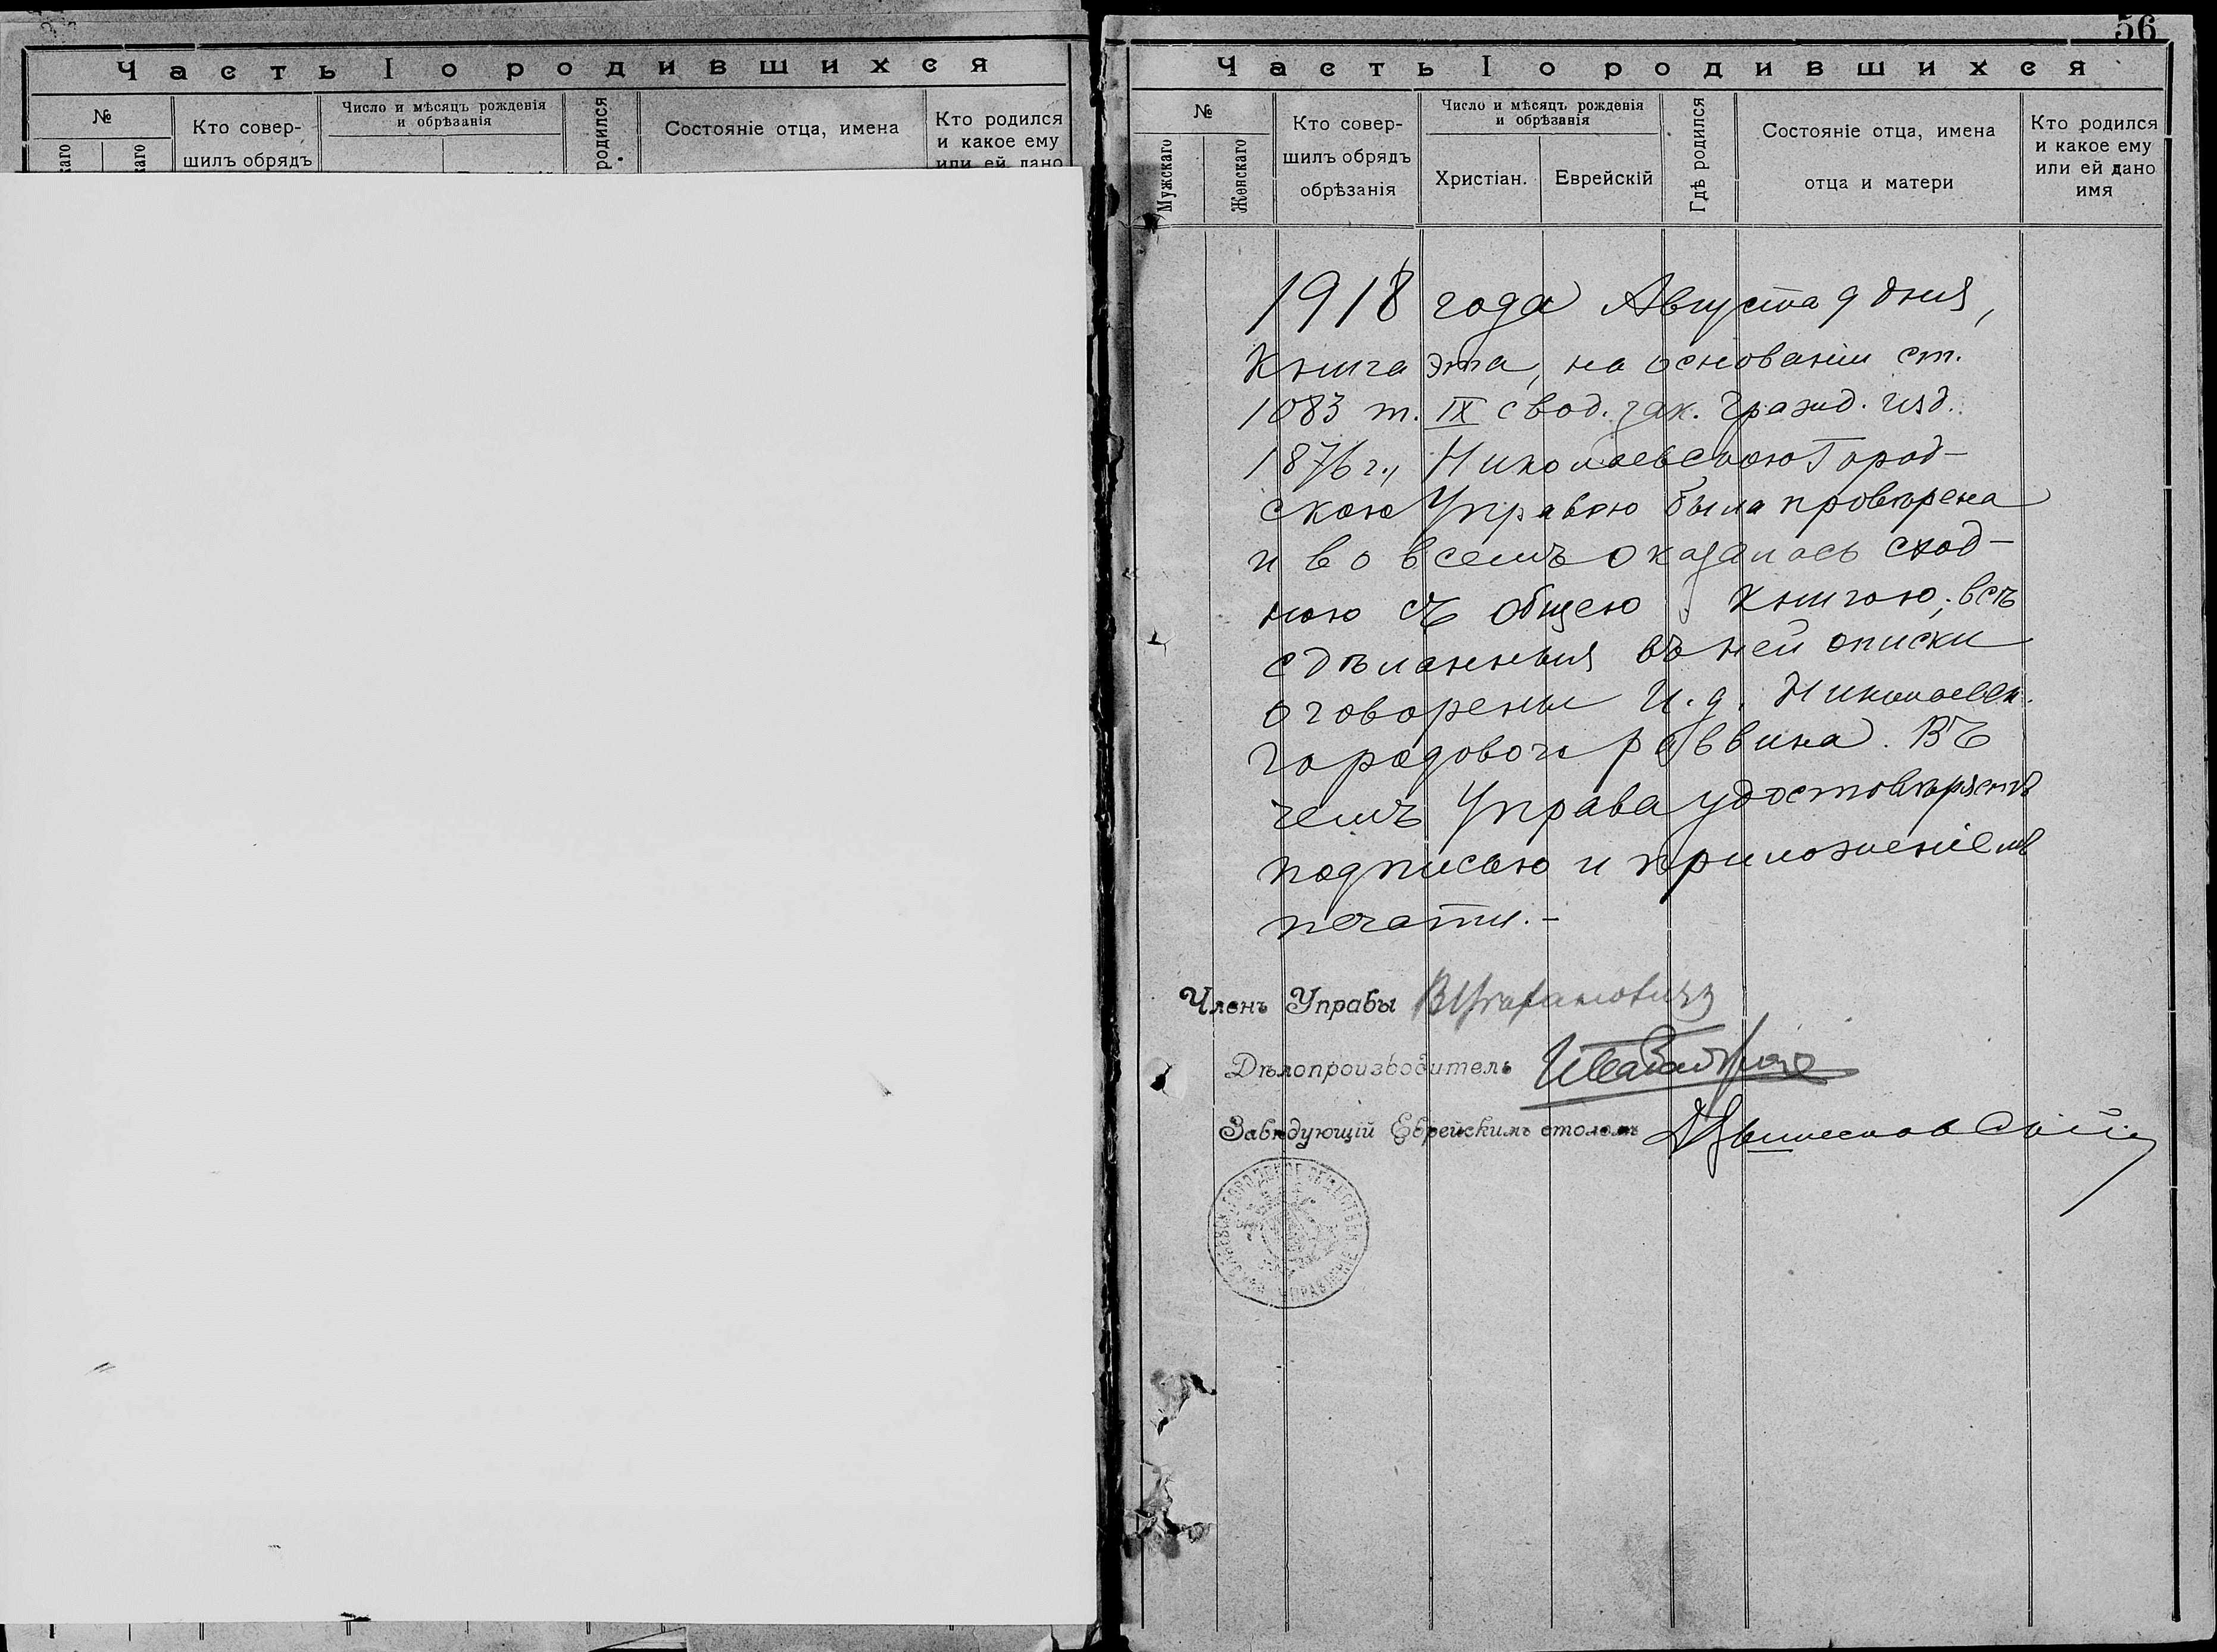 Часть I о родившихся
№
Кто совер-
шилъ обрядъ
Число и мѣсяцъ рожденія
и обрѣзанія
родился
Состояніе отца, имена
Кто родился
и какое ему
или ей дано
56
Часть I о родившихся
№
Мужскаго
Женскаго
Кто совер-
шилъ обрядъ
обрѣзанія
Число и мѣсяцъ рожденія
и обрѣзанія
Христіан.
Еврейскій
Гдѣ родился
Состояніе отца, имена
отца и матери
Кто родился
и какое ему
или ей дано
имя
1918 года Августа 9 дня,
Книга эта, на основаніи ст.
1083 т. IX свод. зак. Гражд. изд.
1876 г., Николаевскою Город-
скою Управою была провѣрена
и во всемъ оказалась сход-
ною съ общею книгою; всѣ
сдѣланныя въ ней описки
оговорены И.д. Николаевск.
городового раввина. Въ
чемъ Управа удостовѣряетъ
подписью и приложеніемъ
печати.-
Членъ Управы
Дѣлопроизводитель
Завѣдующій Еврейскимъ столомъ
ГОРОДСКОЕ ОБЩЕСТВЕН УПРАВЛЕНІЕ